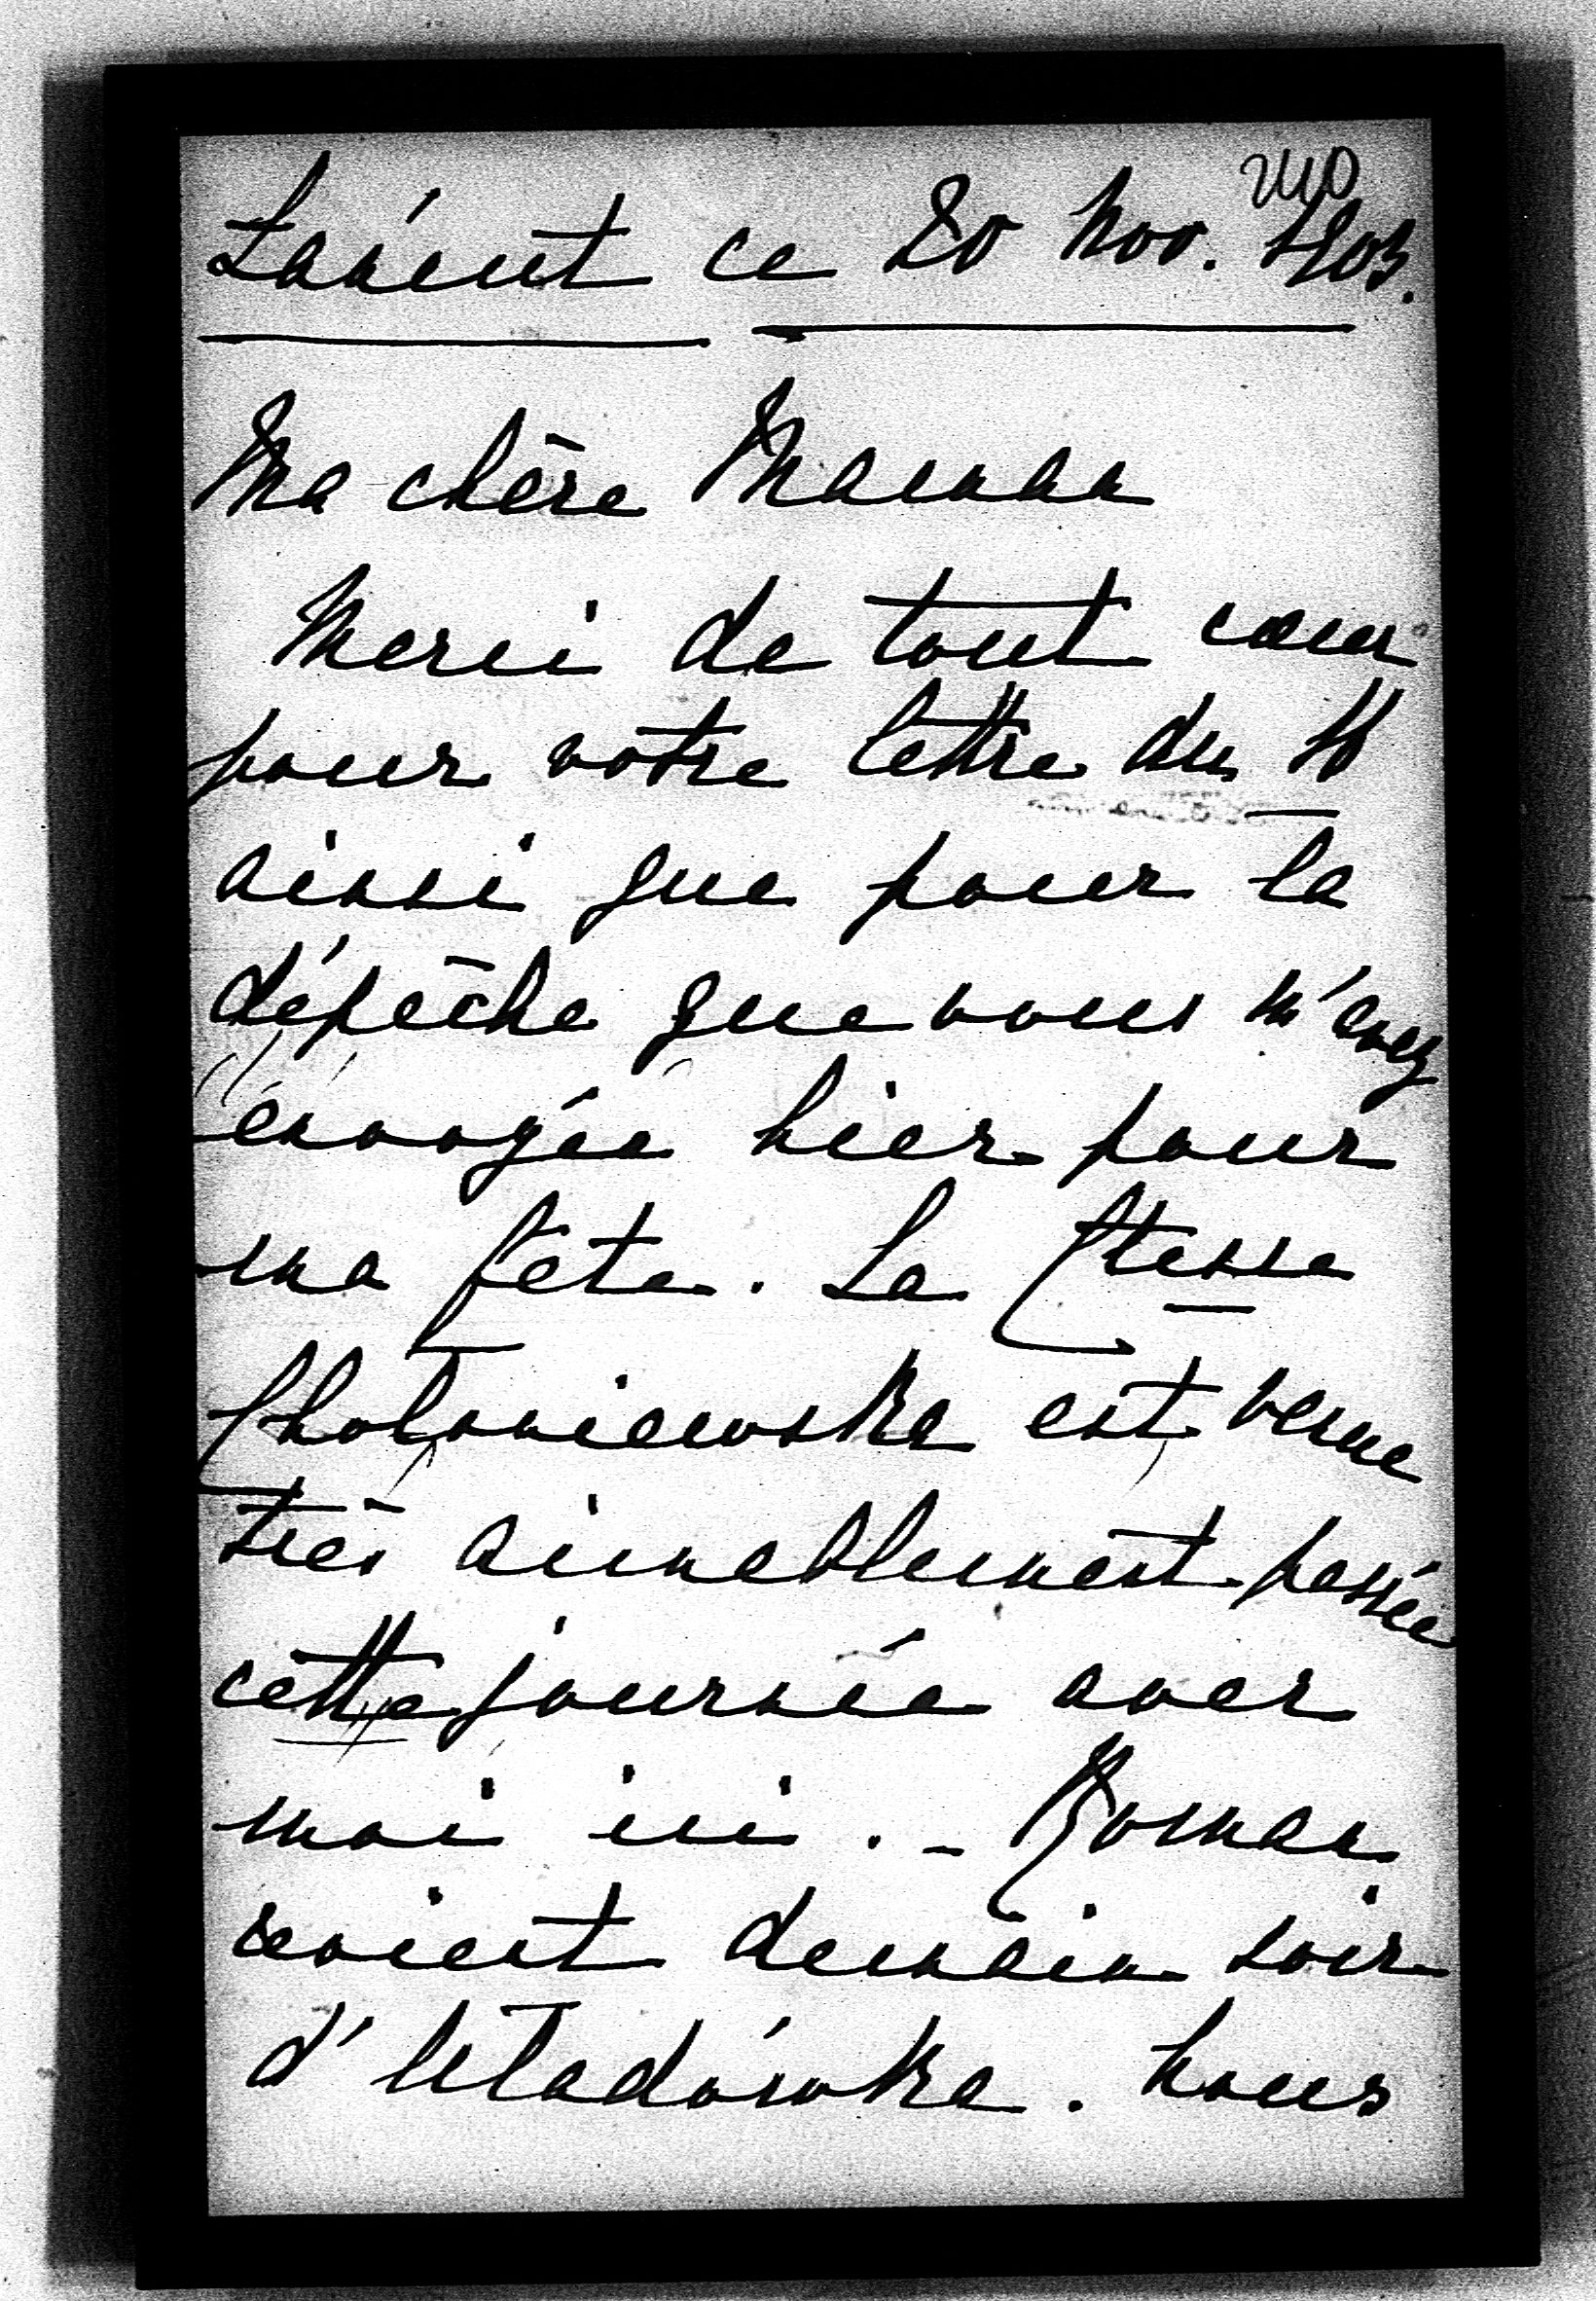 Łańcut ce 20 Nov. 1903.
Ma chère Maman
Merci de tout cœur
pour votre lettre du
ainsi que pour la
dépèche que vous m'avez
envoyée hier pour
ma fète. La Ctesse
Chołoniewska est venue
très aimablement passée
cette journée avec
moi ici. - Roman
revient demain soir
d'Uładówka. Nous